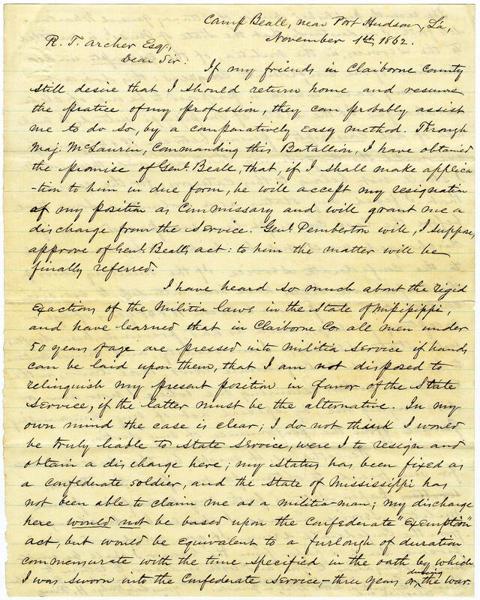 Camp Beall, near Port Hudson, La,
November 1st, 1862.
R. T. Archer Esq,
Dear Sir:
If my friends in Claiborne County
still desire that I should return home and resume
the pratice of my profession, they can probably assist
me to do so, by a comparatively easy method. Through
Maj. McLaurin, Commanding this Batallion, I have obtained
the promise of Genl. Beall, that, if I shall make applica-
-tion to him in due form, he will accept my resignation
of my position as Commissary and will grant me a
discharge from the service. Genl Pemberton will, I suppose,
approve of Genl Beall's act: to him the matter will be
finally referred.
I have heard so much about the rigid
exactions of the Militia laws in the State of Missippi,
and have learned that in Claiborne Co. all men under
50 years of age are pressed into Militia service if hands
can be laid upon them, that I am not disposed to
relinquish my present position in favor of the State
service, if the latter must be the alternative. In my
own mind the case is clear; I do not think I would
be truly liable to State service, were I to resign and
obtain a discharge here; my status has been fixed as
a Confederate soldier, and the State of Mississippi has
not been able to claim me as a militia-man; my discharge
here would not be based upon the Confederate "exemption
act, but would be equivalent to a furlough of duration
commensurate with the time specified in the oath by which
I was sworn into the Confederate service,- three years or during the war.